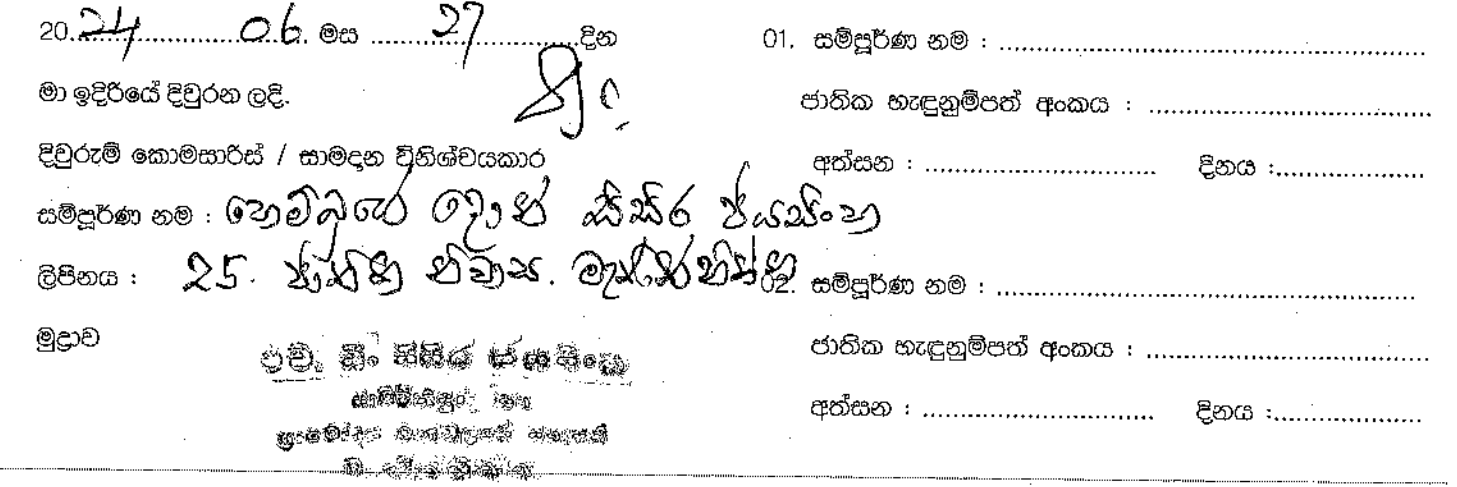 2024 06 මස 27 දින
මා ඉදිරියේ දිවුරන ලදි.
දිවුරුම් කොමසාරිස් / සාමදාන විනිශ්චයකාර
සම්පූර්ණ නම : හෙම්බුගේ දොන් සිසිර ජයසිංහ
ලිපිනය : 25. නිවාස.
මුද්‍රාව
එච්. සිසිර ජයසිංහ
01. සම්පූර්ණ නම : ................
ජාතික හැඳුනුම්පත් අංකය : ................
අත්සන : ................ දිනය :................
02. සම්පූර්ණ නම : ................
ජාතික හැඳුනුම්පත් අංකය : ................
අත්සන : ................ දිනය :................